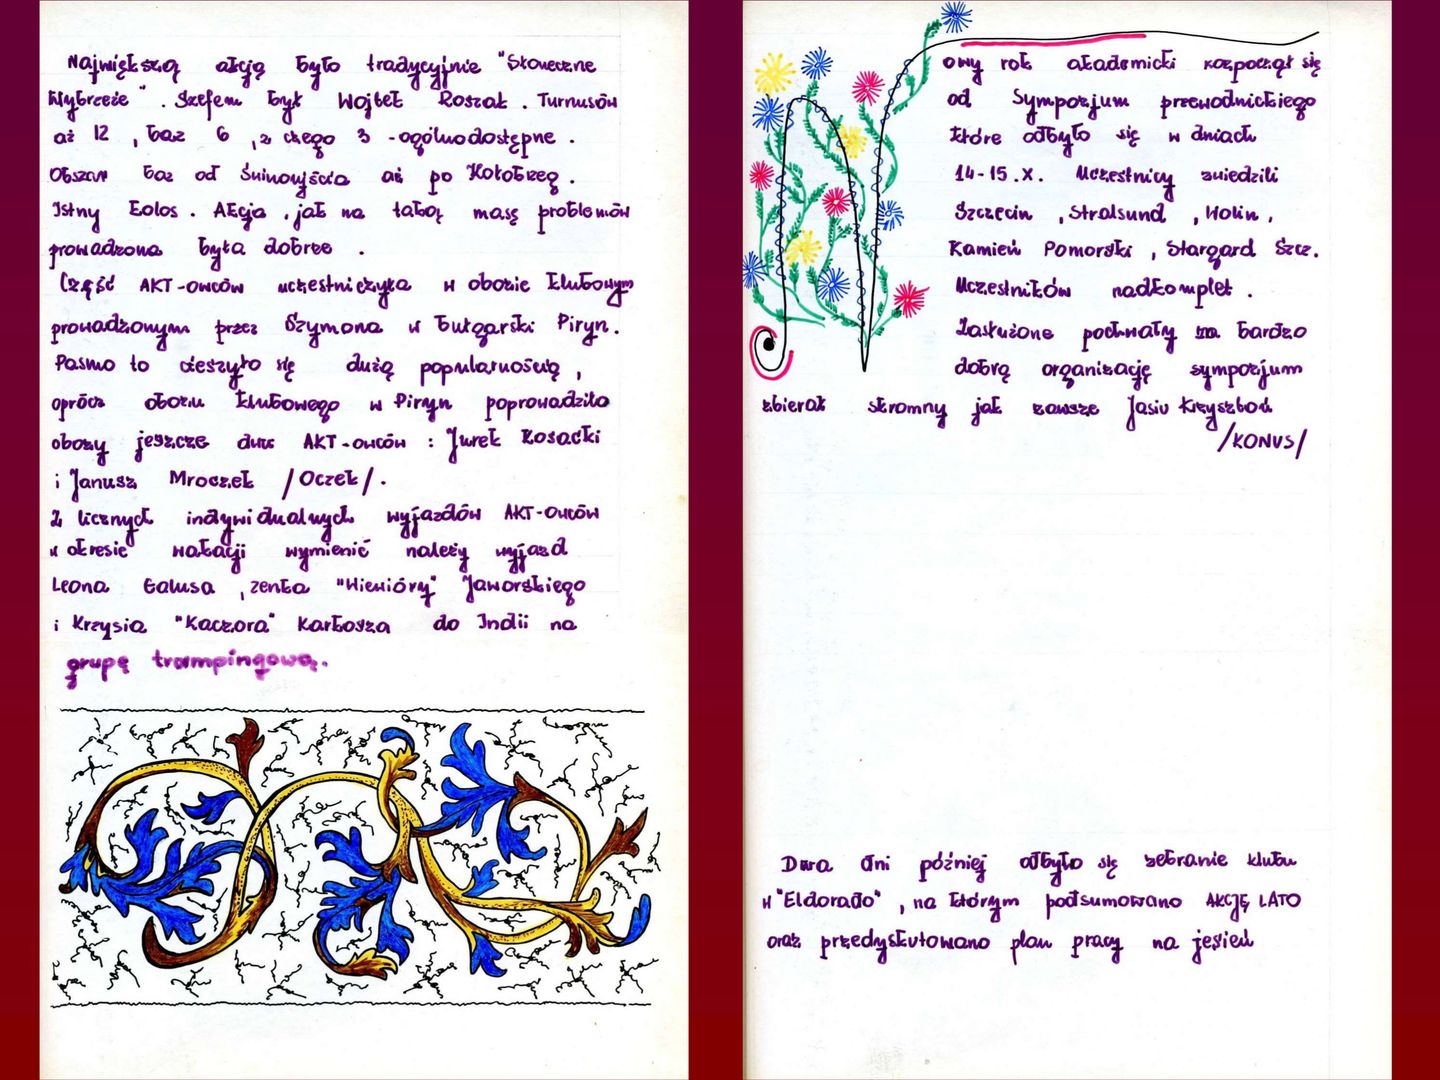 Największą akcją było tradycyjnie "Słoneczne
Wybrzeże". Szefem był Wojtek Roszak. Turnusów
aż 12, baz 6, z czego 3 - ogólnodostępne.
Obszar baz od Świnoujścia aż po Kołobrzeg.
Istny Eolos. Akcja, jak na taką masę problemów
prowadzona była dobrze.
Część AKT-owców uczestniczyła w obozie klubowym
prowadzonym przez Szymona w bułgarski Piryn.
Pasmo to cieszyło się dużą popularnością,
oprócz obozu klubowego w Piryn poprowadziło
obozy jeszcze dwu AKT-owców: Jurek Kosacki
i Janusz Mroczek /Oczek/.
Z licznych indywidualnych wyjazdów AKT-owców
w okresie wakacji wymienić należy wyjazd
Leona Galusa, Zenka "Wiewióry" Jaworskiego
i Krzysia "Kaczora" Karbosza do Indii na
grupę trampingową.
Nowy rok akademicki rozpoczął się
od Sympozjum przewodnickiego
które odbyło się w dniach
14-15.X. Uczestnicy zwiedzili
Szczecin, Stralsund, Wolin,
Kamień Pomorski, Stargard Szcz.
Uczestników nadkomplet.
Zasłużone pochwały za bardzo
dobrą organizację sympozjum
zbierał skromny jak zawsze Jasiu Krzysztoń
/KONUS/
Dwa dni później odbyło się zebranie klubu
w "Eldorado", na którym podsumowano AKCJĘ LATO
oraz przedyskutowano plan pracy na jesień